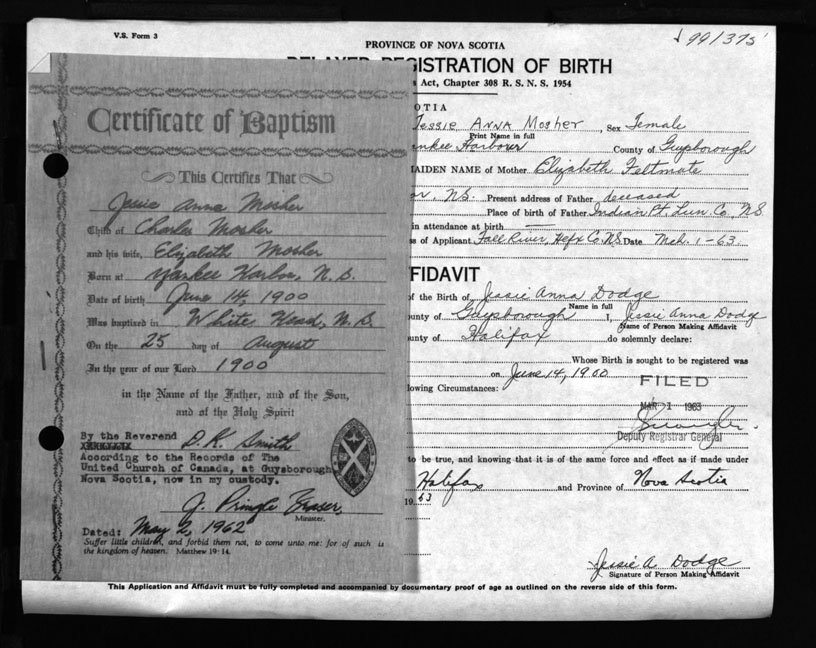 V.S. Form 3
PROVINCE OF NOVA SCOTIA
991375
DELAYED REGISTRATION OF BIRTH
s Act, Chapter 308 R. S. N. S. 1954
Certificate of Baptism
This Certifies That
Jessie Anna Mosher
Child of Charles Mosher
and his wife, Elizabeth Mosher
Born at Yankee Harbor, N.S.
Date of birth June 14, 1900
Was baptized in White Head, N.S.
On the 25 day of August
In the year of our Lord 1900
in the Name of the Father, and of the Son,
and of the Holy Spirit
By the Reverend D. K. Smith
According to the Records of The
United Church of Canada, at Guysborough
Nova Scotia, now in my custody.
J. Pringle Fraser,
Minister.
Dated: May 2, 1962
Suffer little children, and forbid them not, to come unto me: for of such is
the kingdom of heaven. Matthew 19-14.
OTIA
Jessie Anna Mosher, Sex Female
Print Name in full
ankee Harbour County of Guysborough
AIDEN NAME of Mother Elizabeth Feltmate
or, N.S. Present address of Father deceased
Place of birth of Father Indian Pt. Lun. Co. N.S
in attendance at birth —
ss of Applicant Fall River, Hfx Co. N.S. Date Mch. 1-63.
FIDAVIT
of the Birth of Jessie Anna Dodge
Name in full
unty of Guysborough I, Jessie Anna Dodge
Name of Person Making Affidavit
unty of Halifax do solemnly declare:
Whose Birth is sought to be registered was
on June 14, 1900
lowing Circumstances:
FILED
MAR 1 1963
Deputy Registrar General
to be true, and knowing that it is of the same force and effect as if made under
Halifax and Province of Nova Scotia
1963
Jessie A. Dodge
Signature of Person Making Affidavit
This Application and Affidavit must be fully completed and accompanied by documentary proof of age as outlined on the reverse side of this form.